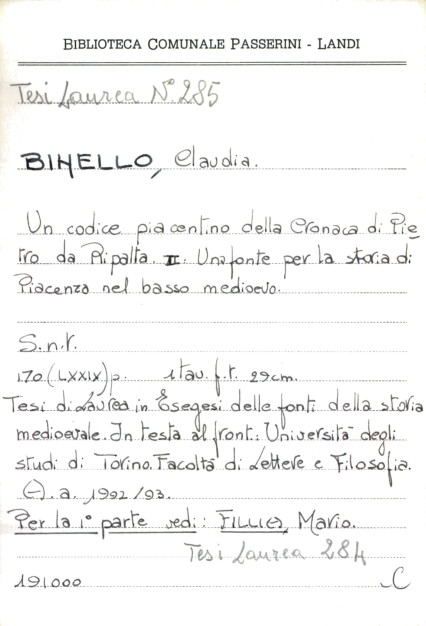 BIBLIOTECA COMUNALE PASSERINI - LANDI
Tesi Laurea N° 285
BINELLO, Claudia.
Un codice piacentino della Cronaca di Pie
tro da Ripalta. II. Una fonte per la storia di
Piacenza nel basso medioevo.
S.n.t.
170 (LXXIX) p. 1 tav. f.t. 29 cm.
Tesi di Laurea in Esegesi delle fonti della storia
medioevale. In testa al front.: Università degli
studi di Torino. Facoltà di Lettere e Filosofia.
(-). a. 1992/93.
Per la 1° parte vedi: Mario.
Tesi Laurea 284
191000 C